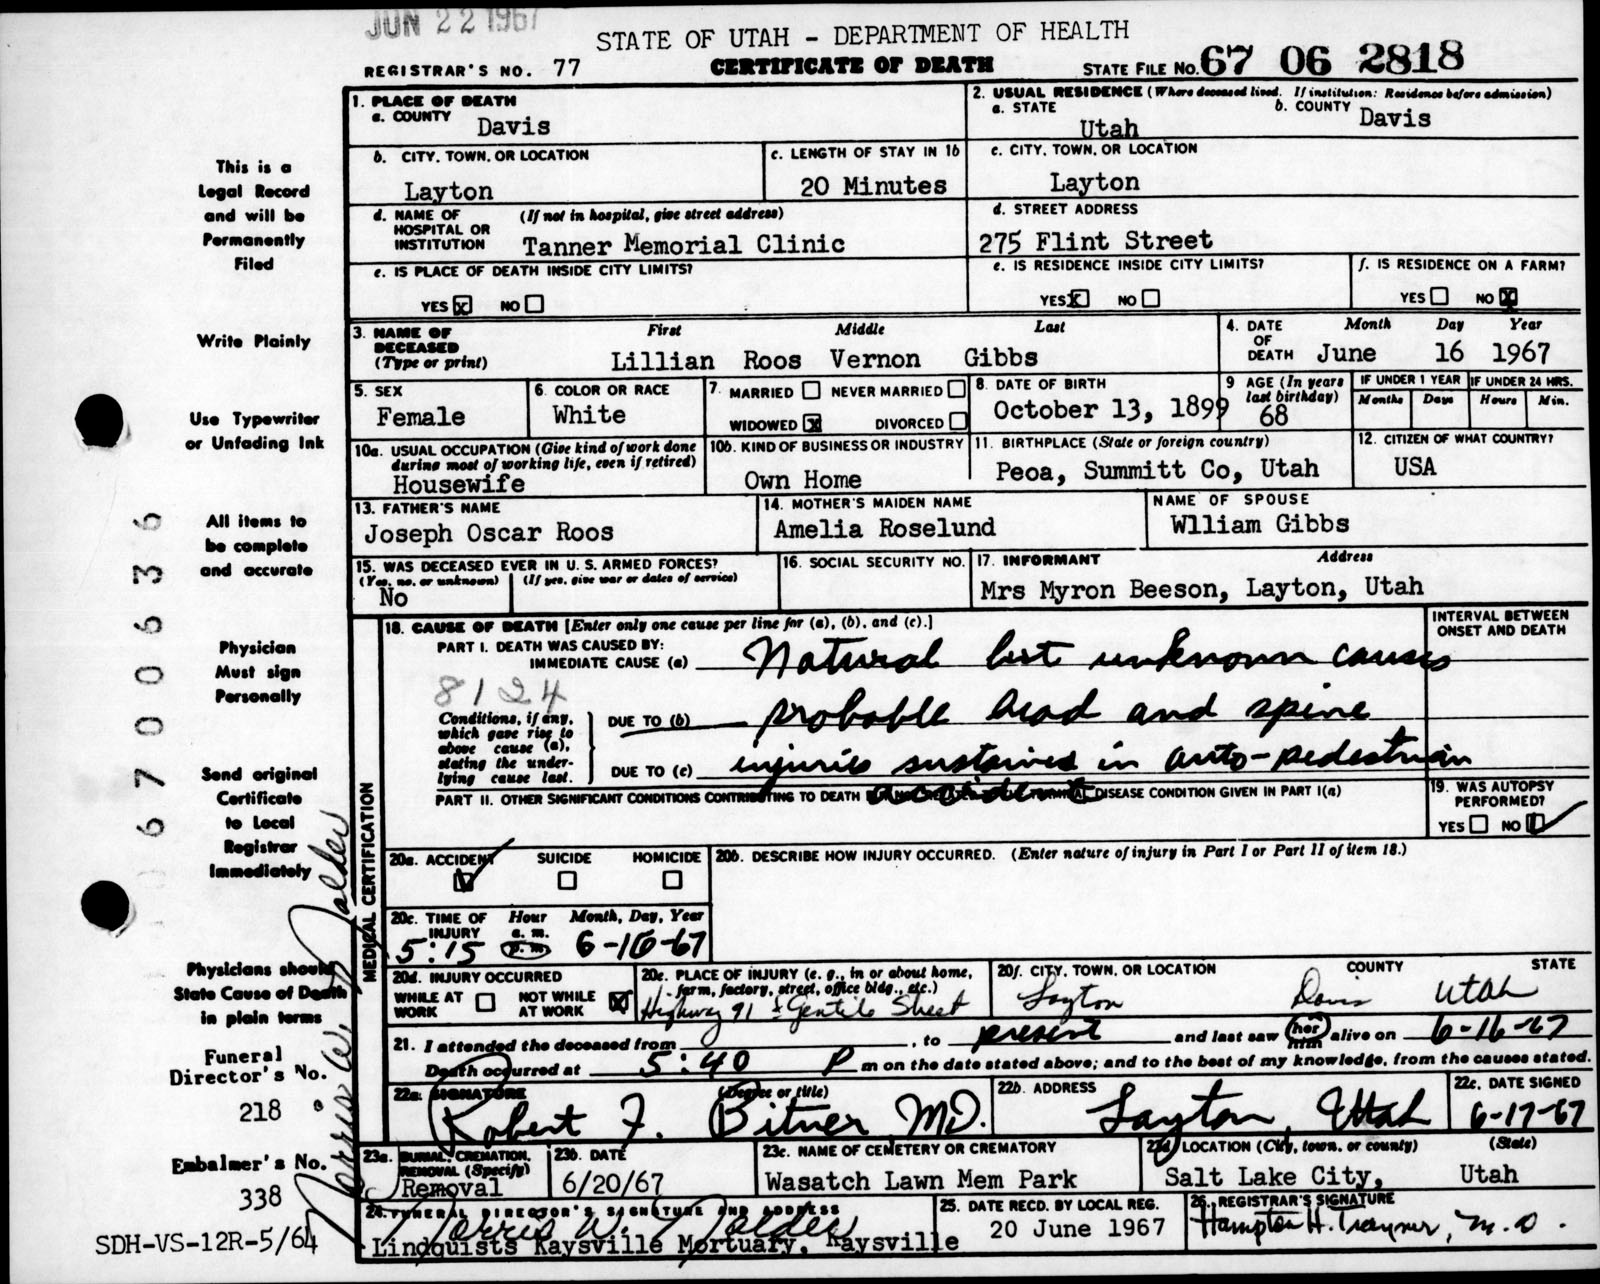 JUN 22 1967
STATE OF UTAH - DEPARTMENT OF HEALTH
REGISTRAR'S NO. 77 CERTIFICATE OF DEATH STATE FILE NO. 67 06 2818
1. PLACE OF DEATH
a. COUNTY
Davis
2. USUAL RESIDENCE (Where deceased lived. If institution: Residence before admission)
a. STATE b. COUNTY
Utah Davis
b. CITY, TOWN, OR LOCATION
Layton
c. LENGTH OF STAY IN 1b
20 Minutes
c. CITY, TOWN, OR LOCATION
Layton
d. NAME OF HOSPITAL OR INSTITUTION (If not in hospital, give street address)
Tanner Memorial Clinic
d. STREET ADDRESS
275 Flint Street
e. IS PLACE OF DEATH INSIDE CITY LIMITS?
YES X NO
e. IS RESIDENCE INSIDE CITY LIMITS?
YES X NO
f. IS RESIDENCE ON A FARM?
YES NO X
3. NAME OF DECEASED (Type or print) First Middle Last
Lillian Roos Vernon Gibbs
4. DATE OF DEATH Month Day Year
June 16 1967
5. SEX
Female
6. COLOR OR RACE
White
7. MARRIED NEVER MARRIED
WIDOWED X DIVORCED
8. DATE OF BIRTH
October 13, 1899
9 AGE (In years last birthday)
68
IF UNDER 1 YEAR IF UNDER 24 HRS.
Months Days Hours Min.
10a. USUAL OCCUPATION (Give kind of work done during most of working life, even if retired)
Housewife
10b. KIND OF BUSINESS OR INDUSTRY
Own Home
11. BIRTHPLACE (State or foreign country)
Peoa, Summitt Co, Utah
12. CITIZEN OF WHAT COUNTRY?
USA
13. FATHER'S NAME
Joseph Oscar Roos
14. MOTHER'S MAIDEN NAME
Amelia Roselund
NAME OF SPOUSE
Wlliam Gibbs
15. WAS DECEASED EVER IN U. S. ARMED FORCES?
(Yes, no, or unknown) (If yes, give war or dates of service)
No
16. SOCIAL SECURITY NO.
17. INFORMANT Address
Mrs Myron Beeson, Layton, Utah
MEDICAL CERTIFICATION
18. CAUSE OF DEATH [Enter only one cause per line for (a), (b), and (c).]
INTERVAL BETWEEN ONSET AND DEATH
PART I. DEATH WAS CAUSED BY:
IMMEDIATE CAUSE (a) Natural but unknown causes
8124
Conditions, if any, which gave rise to above cause (a), stating the underlying cause last.
DUE TO (b) probable head and spine
DUE TO (c) injuries sustained in auto-pedestrian
accident
PART II. OTHER SIGNIFICANT CONDITIONS CONTRIBUTING TO DEATH DISEASE CONDITION GIVEN IN PART I(a)
19. WAS AUTOPSY PERFORMED?
YES NO
20a. ACCIDENT SUICIDE HOMICIDE
20b. DESCRIBE HOW INJURY OCCURRED. (Enter nature of injury in Part I or Part II of item 18.)
20c. TIME OF INJURY Hour Month, Day, Year
a. m.
5:15 p. m. 6-16-67
20d. INJURY OCCURRED
WHILE AT WORK NOT WHILE AT WORK X
20e. PLACE OF INJURY (e. g., in or about home, farm, factory, street, office bldg., etc.)
Highway 91 & Gentile Street
20f. CITY, TOWN, OR LOCATION COUNTY STATE
Layton Davis Utah
21. I attended the deceased from , to present and last saw her him alive on 6-16-67
Death occurred at 5:40 P m on the date stated above; and to the best of my knowledge, from the causes stated.
22a. SIGNATURE (Degree or title)
Robert F. Bitner M.D.
22b. ADDRESS
Layton, Utah
22c. DATE SIGNED
6-17-67
23a. BURIAL, CREMATION, REMOVAL (Specify)
Removal
23b. DATE
6/20/67
23c. NAME OF CEMETERY OR CREMATORY
Wasatch Lawn Mem Park
23d LOCATION (City, town, or county) (State)
Salt Lake City, Utah
24. FUNERAL DIRECTOR'S SIGNATURE AND ADDRESS
Lindquists Kaysville Mortuary, Kaysville
25. DATE RECD. BY LOCAL REG.
20 June 1967
26. REGISTRAR'S SIGNATURE
Hampton H. Trayner, M.D.
This is a
Legal Record
and will be
Permanently
Filed
Write Plainly
Use Typewriter
or Unfading Ink
All items to
be complete
and accurate
Physician
Must sign
Personally
Send original
Certificate
to Local
Registrar
Immediately
Physicians should
State Cause of Death
in plain terms
Funeral
Director's No.
218
Embalmer's No.
338
SDH-VS-12R-5/64
6700636